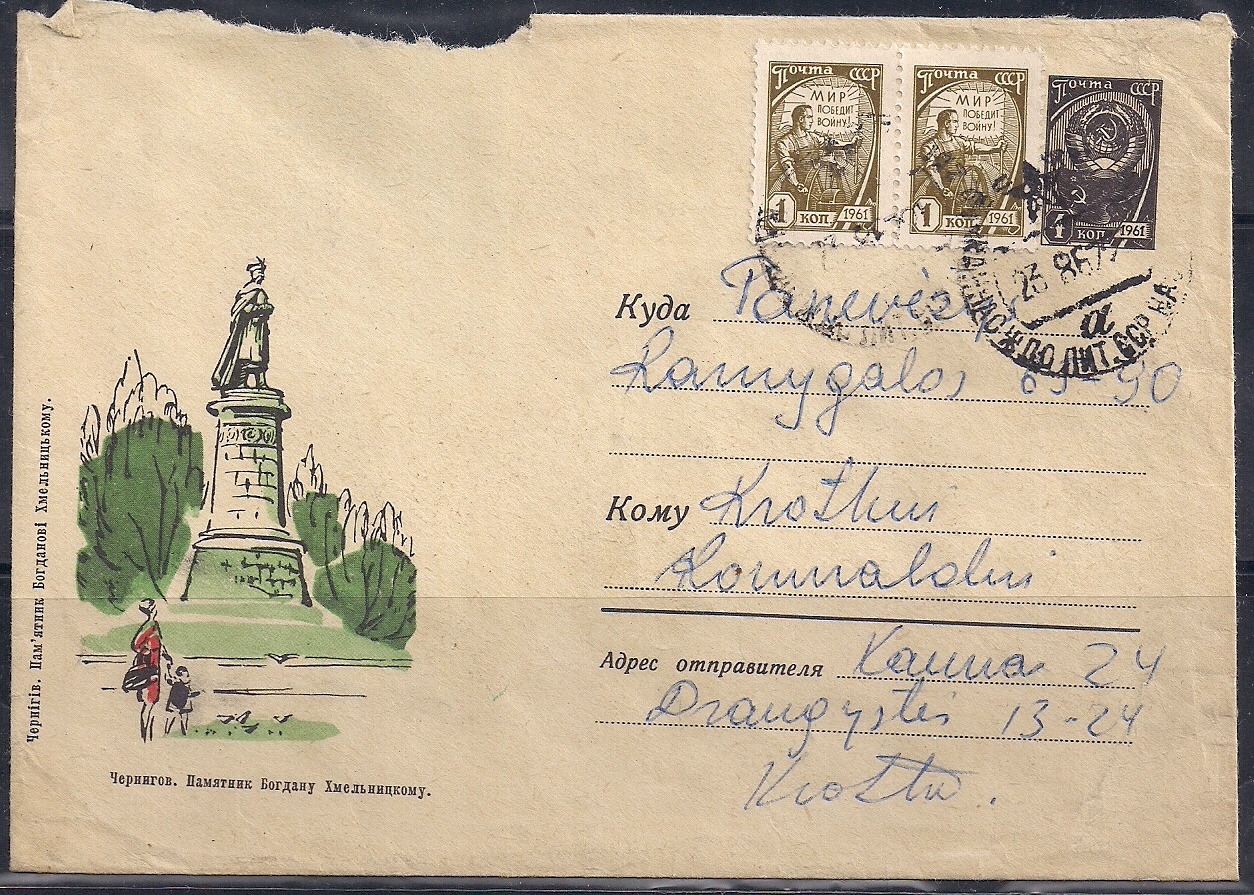 Почта СССР
МИР
ПОБЕДИТ
ВОЙНУ!
1 КОП. 1961
Почта СССР
МИР
ПОБЕДИТ
ВОЙНУ!
1 КОП. 1961
Почта СССР
1 КОП. 1961
ЛИТ.ССР
а
Куда Panevėžys
Ramygalos -90
Кому Krotkui
Romualdui
Адрес отправителя Kaunas 24
Draugystės 13-24
Чернігів. Пам'ятник Богданові Хмельницькому.
Чернигов. Памятник Богдану Хмельницкому.